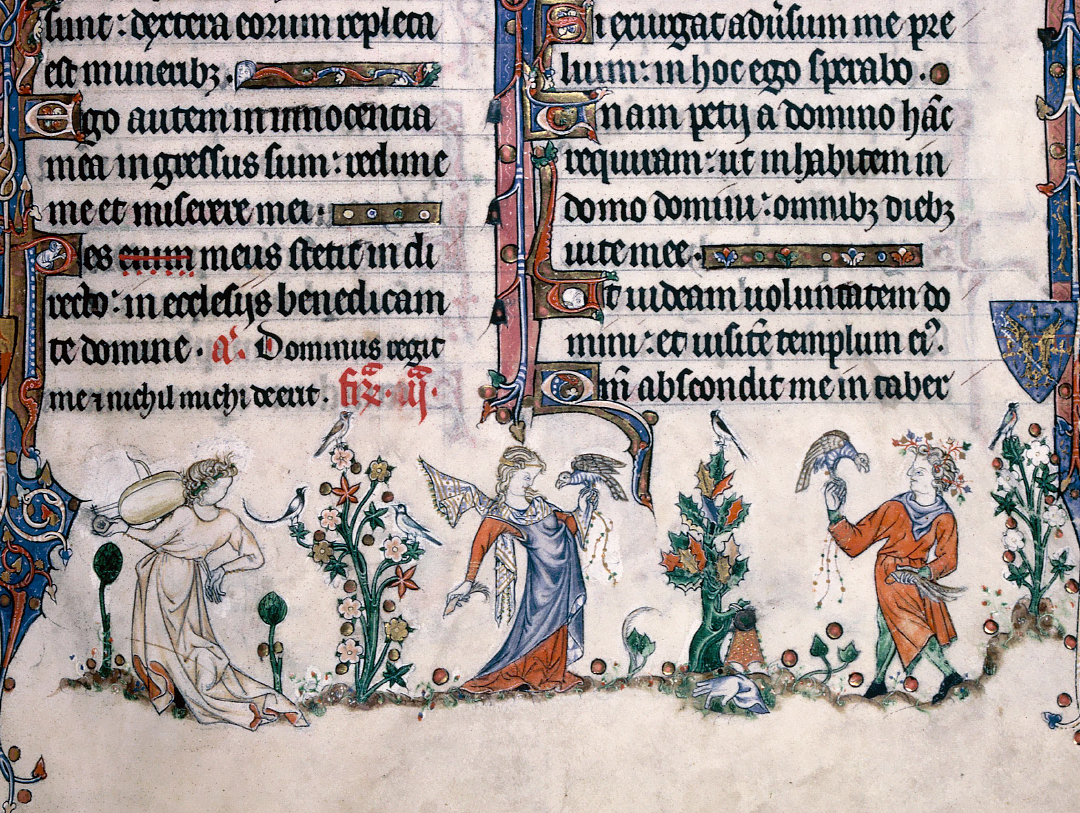 sunt: dextera eorum repleta
est muneribꝫ.
Ego autem in innocentia
mea ingressus sum: redime
me et miserere mei:
Pes enim meus stetit in di
recto: in ecclesijs benedicam
te domine. a͛. Dominus regit
me ⁊ nichil michi deerit.
Si exurgat adūsum me pre
lium: in hoc ego sperabo.
Unam petij a domino hāc
requiram: ut inhabitem in
domo domini: omnibꝫ diebꝫ
uite mee.
Ut uideam uoluntatem do
mini: et uisitē templum eiꝰ.
Qm̄ abscondit me in taber